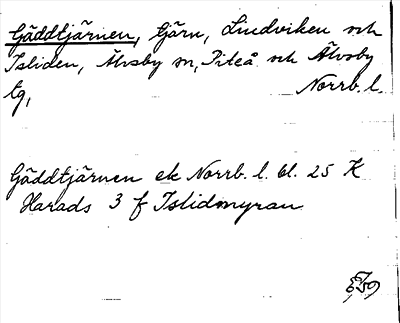 Gäddtjärnen, tjärn, Lindviken och
Isliden, Älvsby sn, Piteå och Älvsby
tg, Norrb. l.
Gäddtjärnen ek Norrb. l. bl. 25 K
Harads 3 f Islidmyran